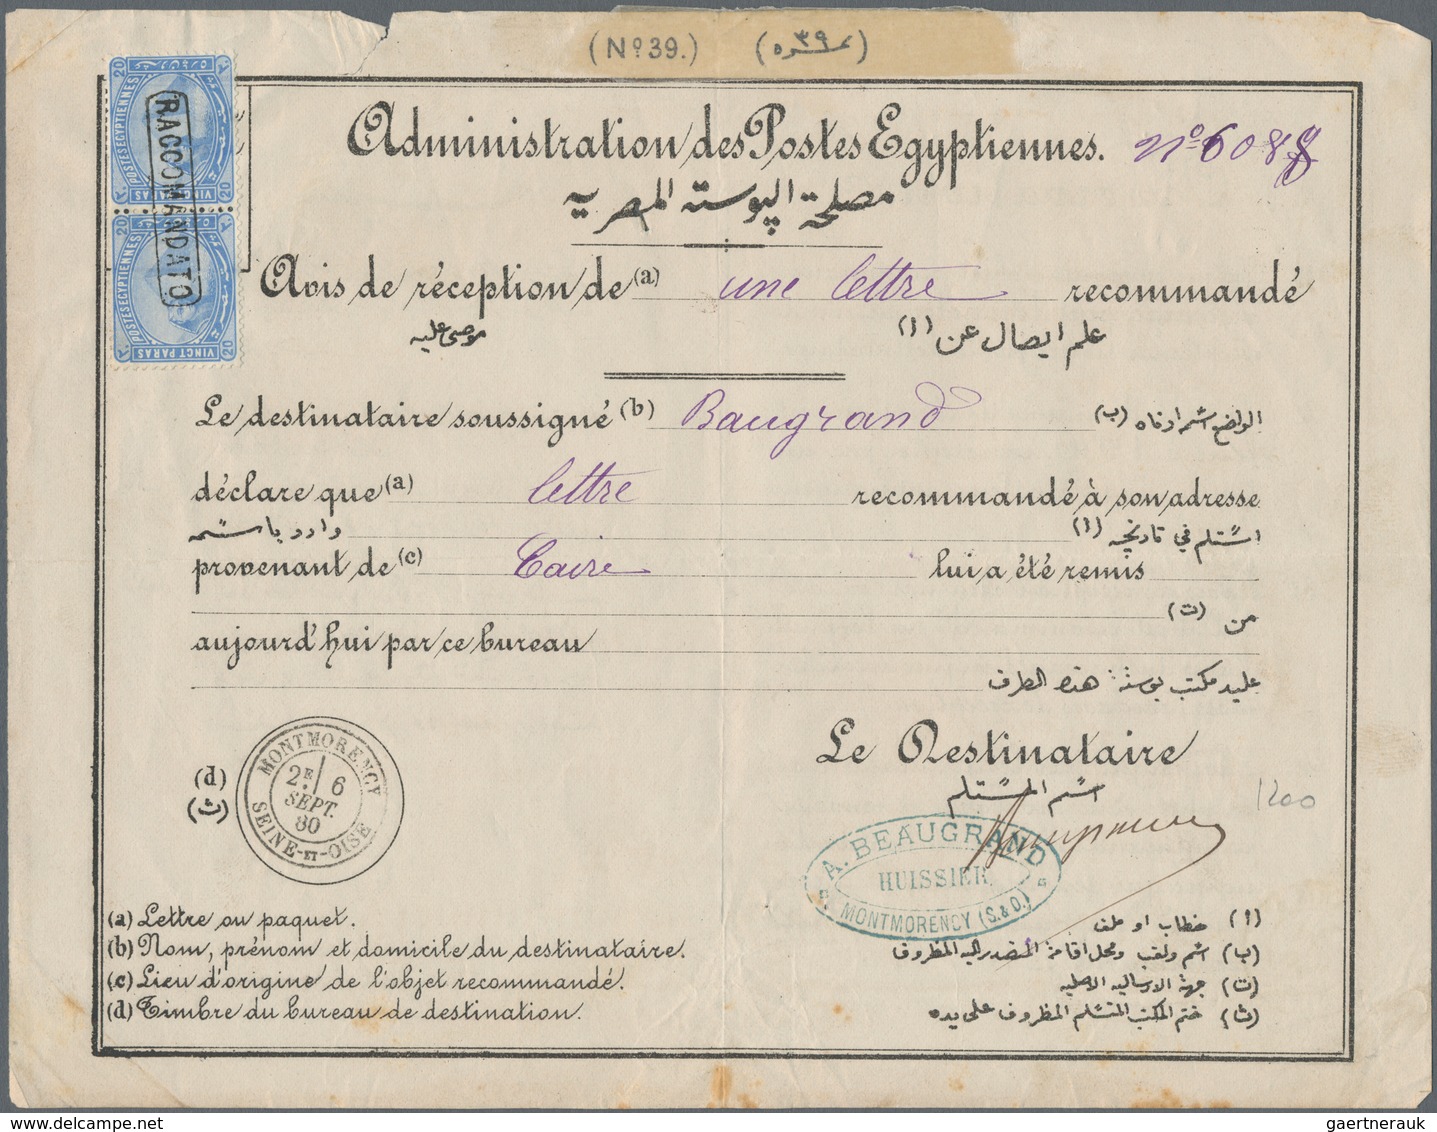 (Nº39.) (نمره ٣٩)
Administration des Postes Egyptiennes. nº 608
مصلحة البوسته المصريه
20 POSTES EGYPTIENNES 20
VINGT PARAS
20 POSTES EGYPTIENNES 20
VINGT PARAS
RACCOMANDATO
Avis de réception de (a) une lettre recommandé
علم ايصال عن (ا) موصى عليه
Le destinataire soussigné (b) Baugrand
الواضع اسمه ادناه (ب)
déclare que (a) lettre recommandé à son adresse
استلم في تاريخه (ا) وارد باسمه
provenant de (c) Caire lui a été remis
من (ت)
aujourd'hui par ce bureau
عليد مكتب بوستة هذا الطرف
Le Destinataire
اسم المستلم
1200
(d)
(ث)
MONTMORENCY
2E 6
SEPT.
80
SEINE-ET-OISE
A. BEAUGRAND
HUISSIER
MONTMORENCY (S.&O.)
(a) Lettre ou paquet.
(ا) خطاب او ملف
(b) Nom, prénom et domicile du destinataire.
(ب) اسم ولقب ومحل اقامة المتصدر اليه المظروف
(c) Lieu d'origine de l'objet recommandé.
(ت) جهة الارساليه الاصليه
(d) Timbre du bureau de destination.
(ث) ختم المكتب المتسلم المظروف على يده
gaertnerauk